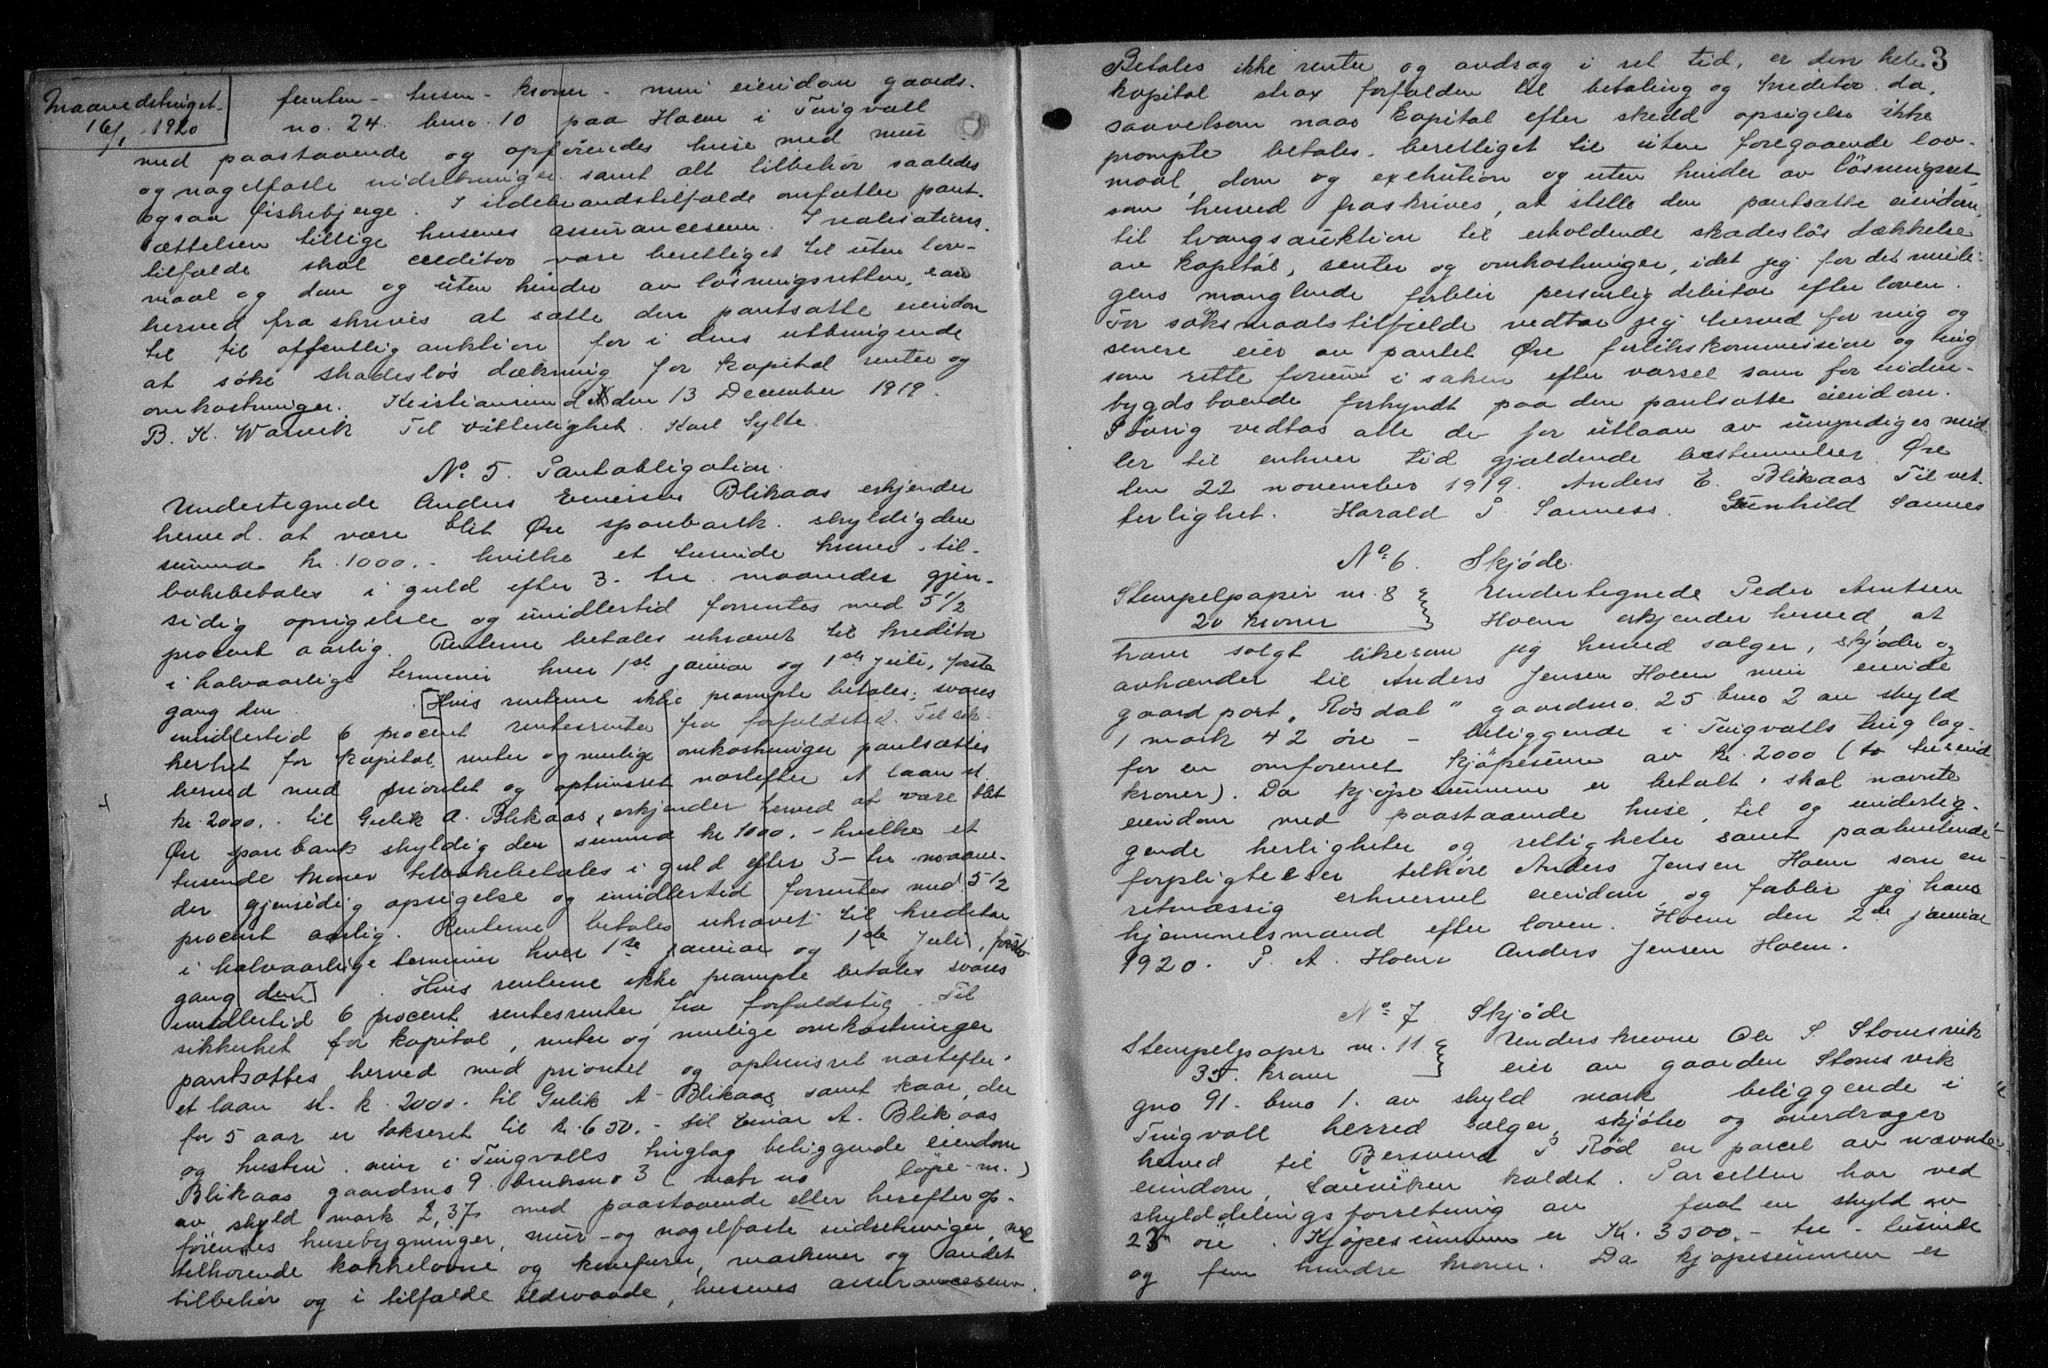 Maanedstinget
16/1 1920
femten - tusen - kroner - min eiendom gaards-
no. 24 bno. 10 paa Hoem i Tingvoll
med paastaaende og opførendes huse med mur
og nagelfaste indretninger samt alt tilbehör saaledes
ogsaa fiskebjerge. I ildebrandstilfælde omfatter pant-
sættelsen tillige husenes assurancesum. I realisations-
tilfælde skal creditor være berettiget til uten lov-
maal og dom og uten hinder av løsningsretten, som
herved fraskrives at sætte den pantsatte eiendom
til til offentlig auktion for i dens utbringende
at søke skadesløs dækning for kapital renter og
omkostninger. Kristiansund N den 13 December 1919.
B. K. Warvik Til vitterlighet. Karl Sylte.
No. 5. Pantobligation.
Undertegnede Anders Einarsen Blikaas erkjender
herved at være blit Øre sparbank skyldig den
summa kr. 1000. - hvilke et tusinde kroner - til-
bakebetales i guld efter 3 - tre maaneders gjen-
sidig opsigelse og imidlertid forrentes med 5 1/2
procent aarlig. Renterne betales ukrævet til kreditor
i halvaarlige terminer hver 1st januar og 1ste juli, første
gang den . [Hvis renterne ikke prompte betales, svares
imidlertid 6 procent rentesrenter fra forfaldstid. Til sik-
kerhet for kapital, renter og mulige omkostninger pantsættes
herved med prioritet og optrinsret næstefter et laan st.
kr. 2000. - til Gulik A. Blikaas, erkjender herved at være blit
Øre sparebank skyldig den summa kr 1000. - hvilke et
tusende kroner tilbakebetales i guld efter 3 - tre maane-
der gjensidig opsigelse og imidlertid forrentes med 5 1/2
procent aarlig. Renterne betales ukrævet til kreditor
i halvaarlige terminer hver 1ste januar og 1ste Juli, første
gang den] . Hvis renterne ikke prompte betales svares
imidlertid 6 procent rentesrenter fra forfaldstig. Til
sikkerhet for kapital, renter og mulige omkostninger
pantsættes herved med prioritet og optrinsret næstefter
et laan st. k. 2000. - til Gulik A. Blikaas samt kaar, der
for 5 aar er takseret til kr. 650. - til Einar A. Blikaas
og hustru min i Tingvolls tinglag beliggende eiendom
Blikaas gaardsno 9 bruksno 3 (matr no løpe-nr.)
av skyld mark 2,37 med paastaaende eller herefter op-
førendes husebygninger, mur- og nagelfaste indretninger, med
tilhørende kakkelovne og komfurer, maskiner og andet
tilbehør og i tilfælde ildsvaade, husenes assurancesum.
3
Betales ikke renter og avdrag i ret tid, er den hele
kapital strax forfalden til betaling og kreditor da,
saavelsom naar kapital efter skedd opsigelse ikke
prompte betales, berettiget til uten foregaaende lov-
maal, dom og exekution og uten hinder av løsningsret,
som herved fraskrives, at stille den pantsatte eiendom
til tvangsauktion til erholdende skadesløs dækkelse
av kapital, renter og omkostninger, idet jeg for det mulig-
gens manglende forblir personlig debitor efter loven.
For søksmaalstilfælde vedtar jeg herved for mig og
senere eier av pantet Øre forlikskommission og ting
som rette forum i saken efter varsel som for inden-
bygdsboende forkyndt paa den pantsatte eiendom.
I øvrig vedtas alle de for utlaan av umyndiges mid-
ler til enhver tid gjældende bestemmelser. Øre
den 22 november 1919. Anders E. Blikaas Til vit-
terlighet. Harald P. Sanness. Gunhild Sannes
No. 6. Skjøde.
Stempelpapir nr. 8
20 kroner
Undertegnede Peder Arntsen
Hoem erkjender herved, at
have solgt likesom jeg herved sælger, skjøder og
avhænder til Anders Jensen Hoem min eiende
gaardpart "Røsdal" gaardsno. 25 bno 2 av skyld
1 mark 42 øre - beliggende i Tingvolls tinglag
for en omforenet kjøpesum av kr. 2000 (to tusend
kroner). Da kjøpesummen er betalt, skal nævnte
eiendom med paastaaende huse, til og underlig-
gende herligheter og rettigheter samt paahvilende
forpligtelser tilhøre Anders Jensen Hoem som en
retmæssig erhvervet eiendom og forblir jeg hans
hjemmelsmand efter loven. Hoem den 2de januar
1920. P. A. Hoem Anders Jensen Hoem.
No. 7 Skjøde
Stempelpapir nr. 11
35. kroner
Underskrevne Ole S. Stomsvik
eier av gaarden Stomsvik
gno 91. bno 1. av skyld mark beliggende i
Tingvoll herred sælger, skjøter og overdrager
herved til Bersvend P. Rød en parcel av nævnte
eiendom, Sauviken kaldet. Parsellen har ved
skylddelingsforretning av faat en skyld av
25 øre. Kjøpesummen er Kr. 3500. - tre - tusinde
og fem hundre kroner. Da kjøpesummen er